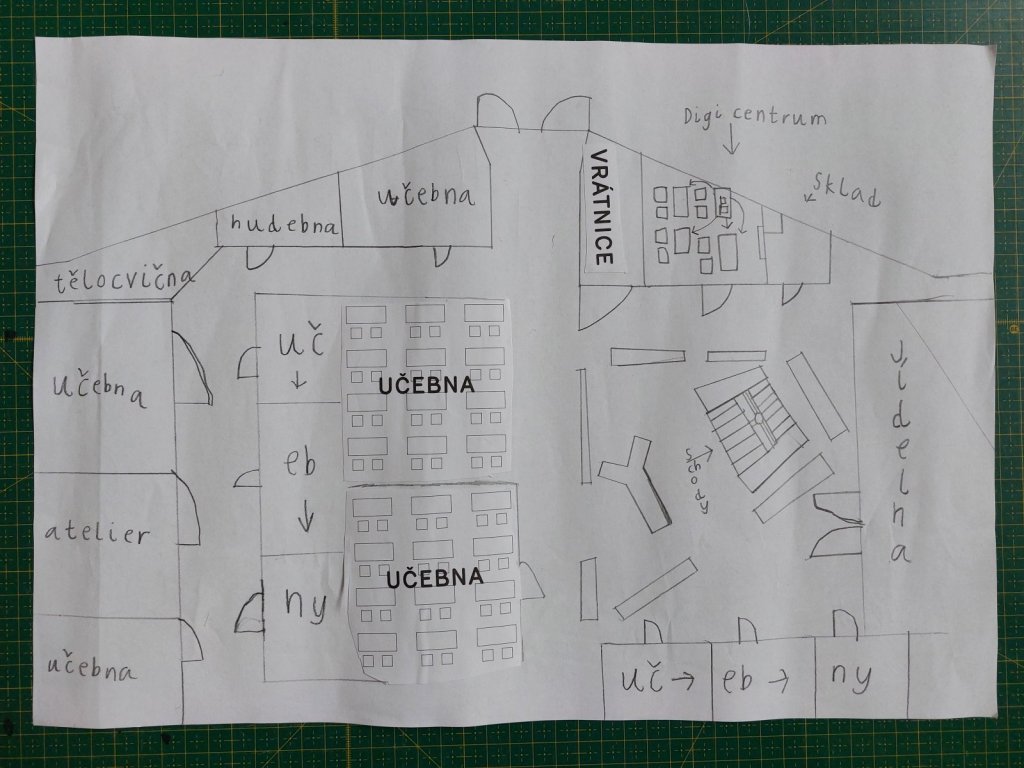 Digi centrum
sklad
učebna
hudebna
VRÁTNICE
tělocvična
uč
učebna
UČEBNA
jídelna
eb
schody
atelier
ny
UČEBNA
učebna
uč
eb
ny